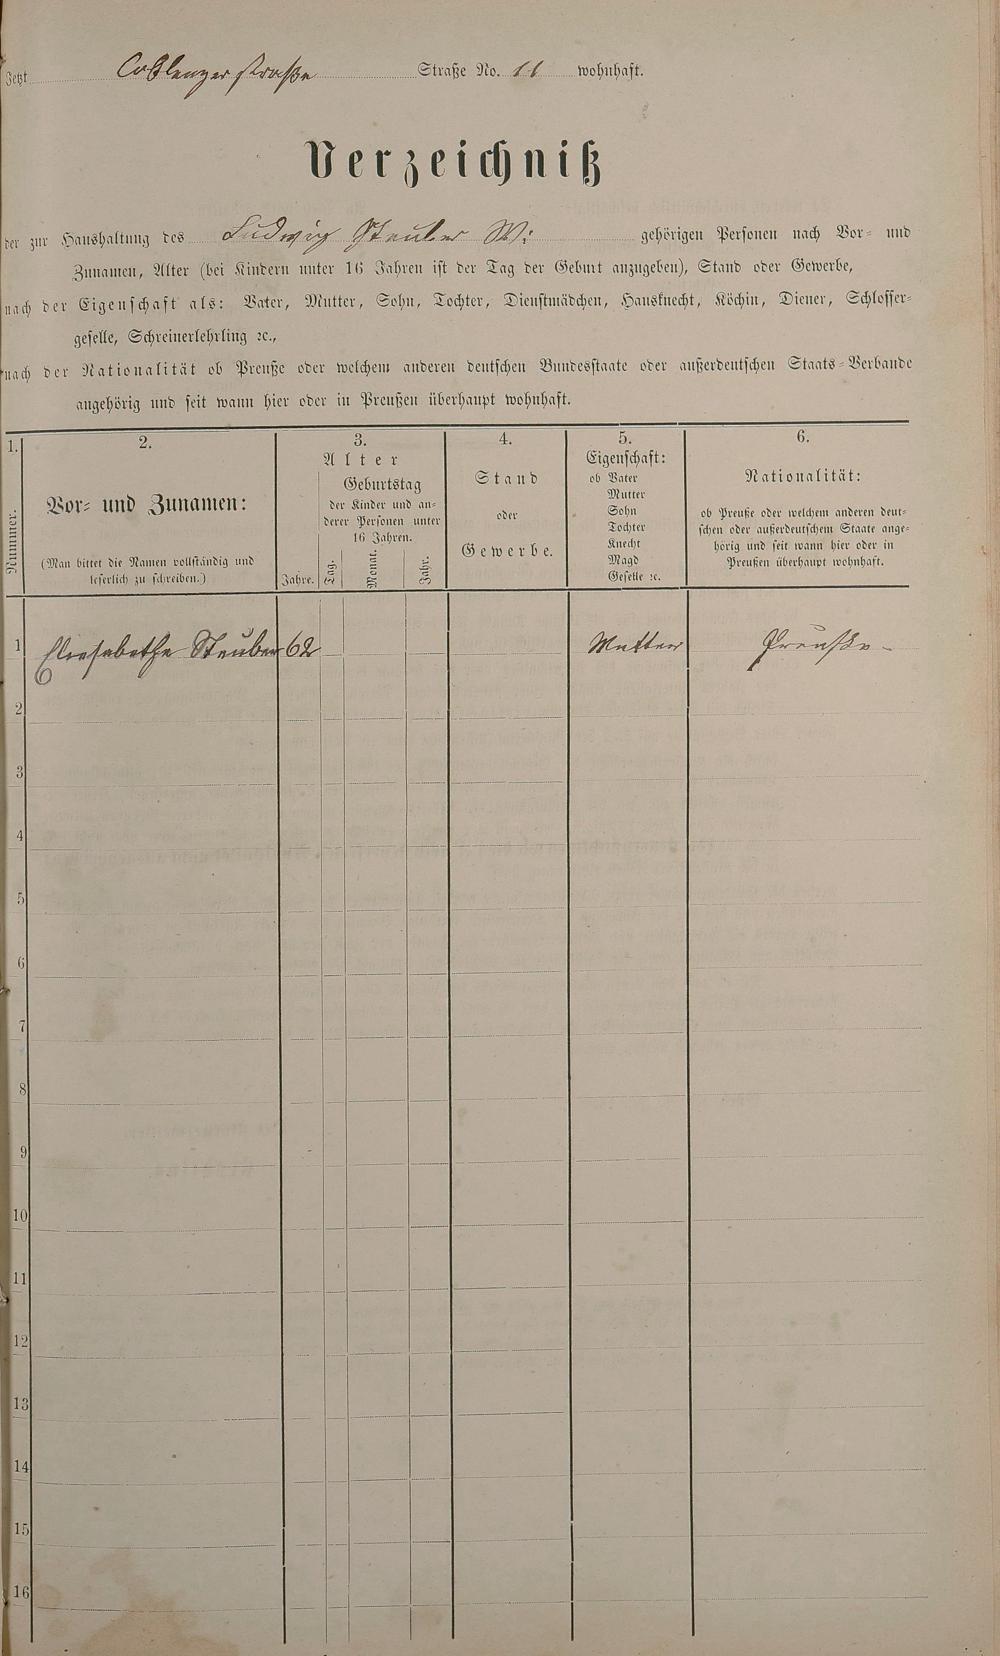 Jetzt Coblenzer straße Straße No. 11 wohnhaft.
Verzeichniß
der zur Haushaltung des Ludwig Steuber W: gehörigen Personen nach Vor- und
Zunamen, Alter (bei Kindern unter 16 Jahren ist der Tag der Geburt anzugeben), Stand oder Gewerbe,
nach der Eigenschaft als: Vater, Mutter, Sohn, Tochter, Dienstmädchen, Hausknecht, Köchin, Diener, Schlosser-
geselle, Schreinerlehrling ꝛc.,
nach der Nationalität ob Preuße oder welchem anderen deutschen Bundesstaate oder außerdeutschen Staats-Verbande
angehörig und seit wann hier oder in Preußen überhaupt wohnhaft.
1.
Nummer.
2.
Vor- und Zunamen:
(Man bittet die Namen vollständig und
leserlich zu schreiben.)
3.
Alter
Jahre.
Geburtstag
der Kinder und an-
derer Personen unter
16 Jahren.
Tag.
Monat.
Jahr.
4.
Stand
oder
Gewerbe.
5.
Eigenschaft:
ob Vater
Mutter
Sohn
Tochter
Knecht
Magd
Geselle ꝛc.
6.
Nationalität:
ob Preuße oder welchem anderen deut-
schen oder außerdeutschem Staate ange-
hörig und seit wann hier oder in
Preußen überhaupt wohnhaft.
1 Eliesabethe Steuber 62 Mutter Preuße
2
3
4
5
6
7
8
9
10
11
12
13
14
15
16